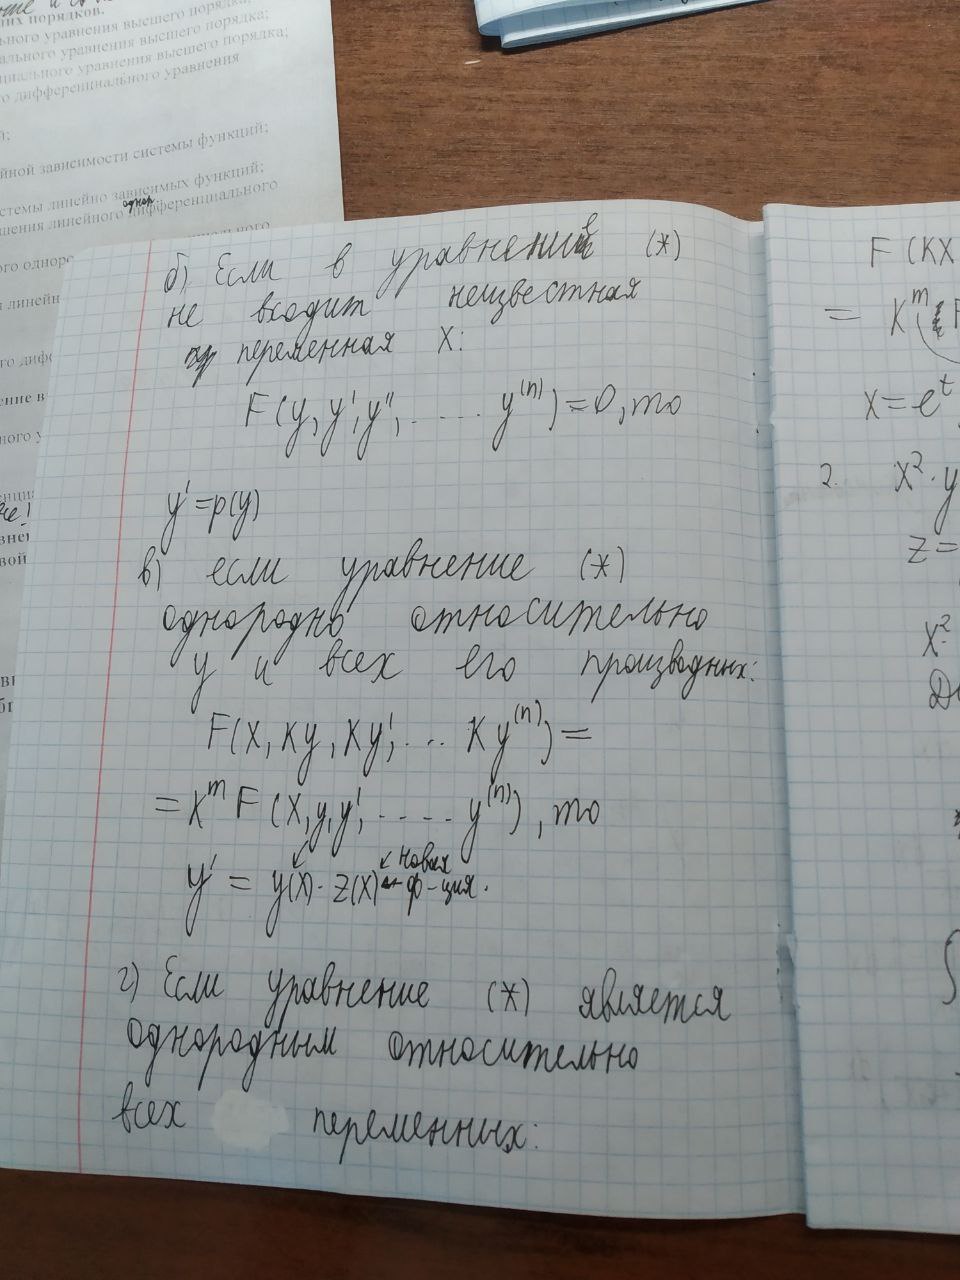 них порядков.
ного уравнения высшего порядка;
ального уравнения высшего порядка;
циального уравнения высшего порядка;
го дифференциального уравнения
й;
ейной зависимости системы функций;
стемы линейно зависимых функций;
однор.
шения линейного дифференциального
ого одноро
линейн
ого дифф
ение в
ного у
внен
вой
б) Если в уравнений (*)
не входит неизвестная
переменная x:
F(y, y', y'', .... y⁽ⁿ⁾) = 0, то
y' = p(y)
в) если уравнение (*)
однородно относительно
y и всех его производных:
F(x, ky, ky', ... ky⁽ⁿ⁾) =
= kᵐ F (x, y, y', ..... y⁽ⁿ⁾), то
y' = y(x) · z(x) ← новая ф-ция.
г) Если уравнение (*) является
однородным относительно
всех переменных:
F (KX
= Kᵐ
x = eᵗ
2. x² · y
z =
x²